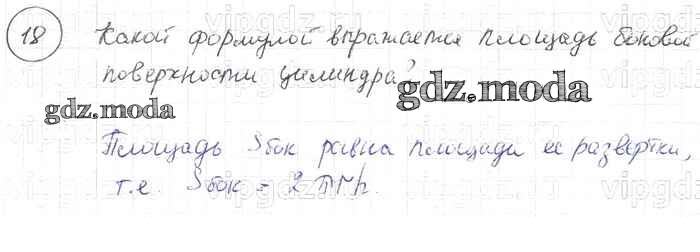 18 Какой формулой выражается площадь боковой
поверхности цилиндра?
gdz.moda
gdz.moda
Площадь Sбок равна площади ее развертки,
т.е. Sбок = 2πrh.